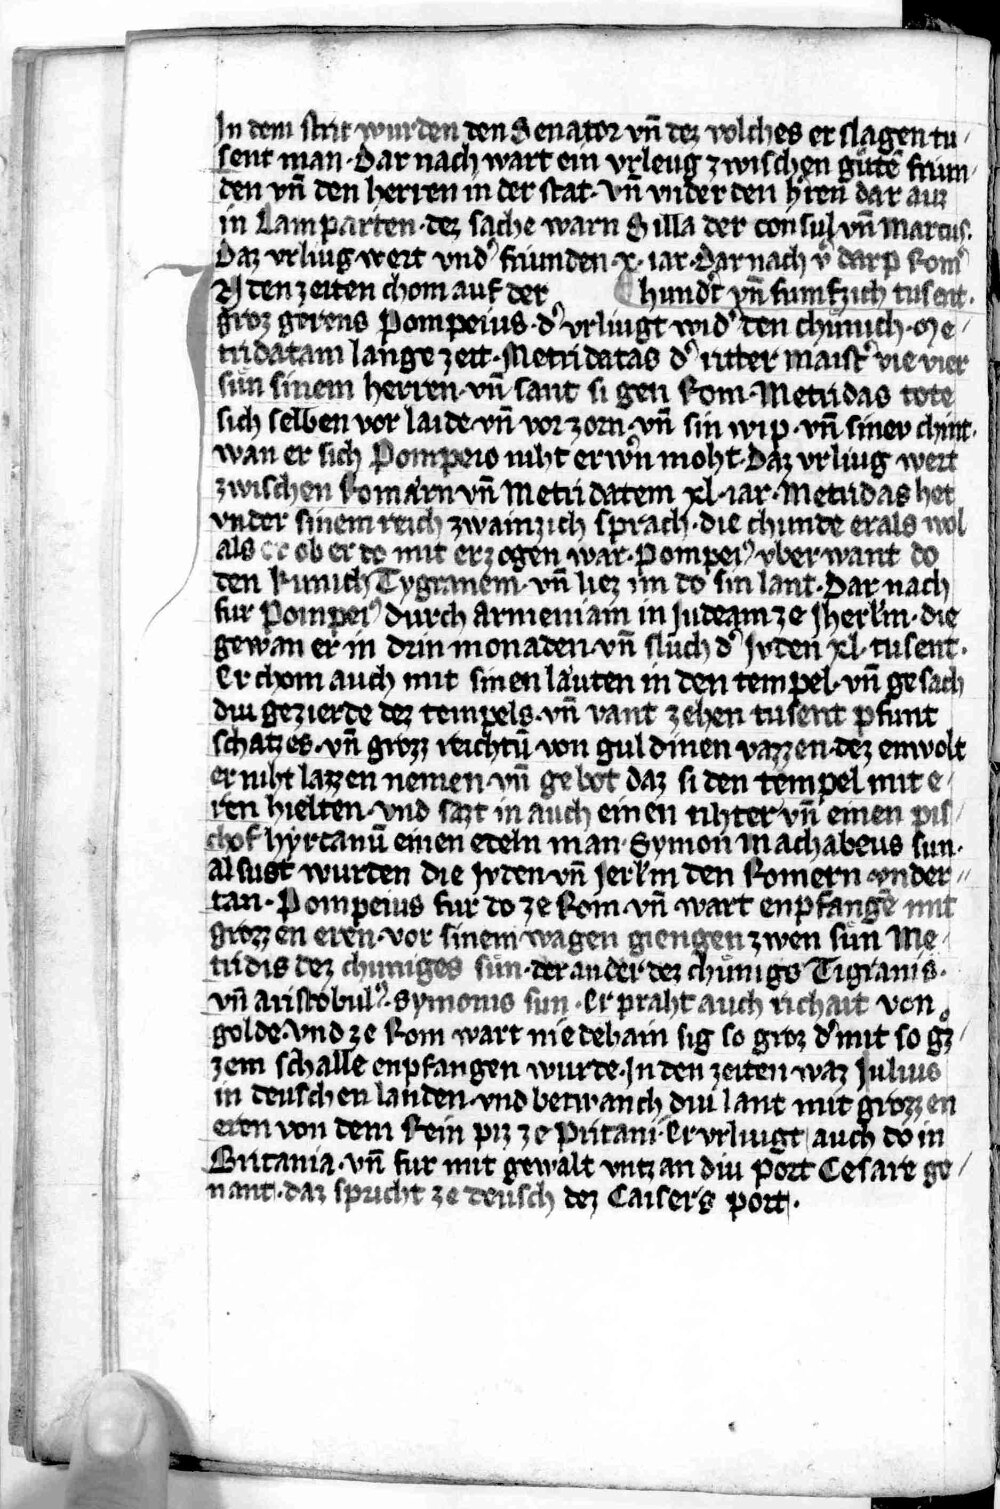 In dem strit wurden den Senator vn̄ dez volches er slagen tu/
sent man · Dar nach wart ein vrleug zwischen gůtē friun/
den vn̄ den herren in der stat · vn̄ vnder den h̓ren dar auz
in Lamparten · dez sache warn Silla der consul vn̄ Marcus.
Daz vrliug wert vnd̓ friunden · x · iar · Dar nach v̓darp Rom̓
In den zeiten chom auf der ¶ hund̓t vn̄ fumfzich tusent ·
groz gerens Pompeius · d̓ vrliugt wid̓ den chůnich · Me/
tridatam lange zeit · Metridatas d̓ ritter maist̓ vie vier
sůn sinem herren · vn̄ sant si gen Rom · Metridas tote
sich selben vor laide · vn̄ vor zorn · vn̄ sin wip · vn̄ sinev chint ·
wan er sich Pompeio niht erw̓n moht · Daz vrliug wert
zwischen Romarn vn̄ Metridatem xl · iar · Metridas het
vnder sinem reich zwainzich sprach · die chunde er als wol
als er ob er do mit erzogen war · Pompei᾽ vberwant do
den Kunich Tygranem · vn̄ liez im do sin lant · Dar nach
fur Pompei᾽ durch Armeniam in Iudeam ze Jherl̓m · die
gewan er in drin monaden · vn̄ slůch d̓ Jvden xl · tusent ·
Er chom auch mit sinen läuten in den tempel · vn̄ gesach
diu gezierde dez tempels · vn̄ vant zehen tusent pfunt
schatzes · vn̄ grozz reichtū von guldinen vazzen · dez enwolt
er niht lazzen nemen · vn̄ gebot daz si den tempel mit e/
ren hielten · vnd sazt in auch einen rihter vn̄ einen pis/
chof hyrcanū einen eteln man · Symon Machabeus sun ·
al sust wurden die Jvden vn̄ Jerl̓m den Romern vnder//
tan · Pompeius fur do ze Rom · vn̄ wart enpfangē mit
grozzen eren · vor sinem wagen giengen zwen sůn Me/
tridis dez chuniges sůn · der ander dez chůnigs Tigranis ·
vn̄ aristobul᾽ · Symonis sun · Er praht auch richait von
golde · Vnd ze Rom wart nie dehain sig so groz d̓ mit so gͦz/
zem schalle enpfangen wurde · In den zeiten waz Julius
in deuschen landen · vnd betwanch diu lant mit grozzen
eren von dem Rein piz ze Pritani · Er vrliugt auch do in
Britania · vn̄ fur mit gewalt vntz an diu port Cesare ge/
nant · daz spricht ze deusch dez Caisers port ·